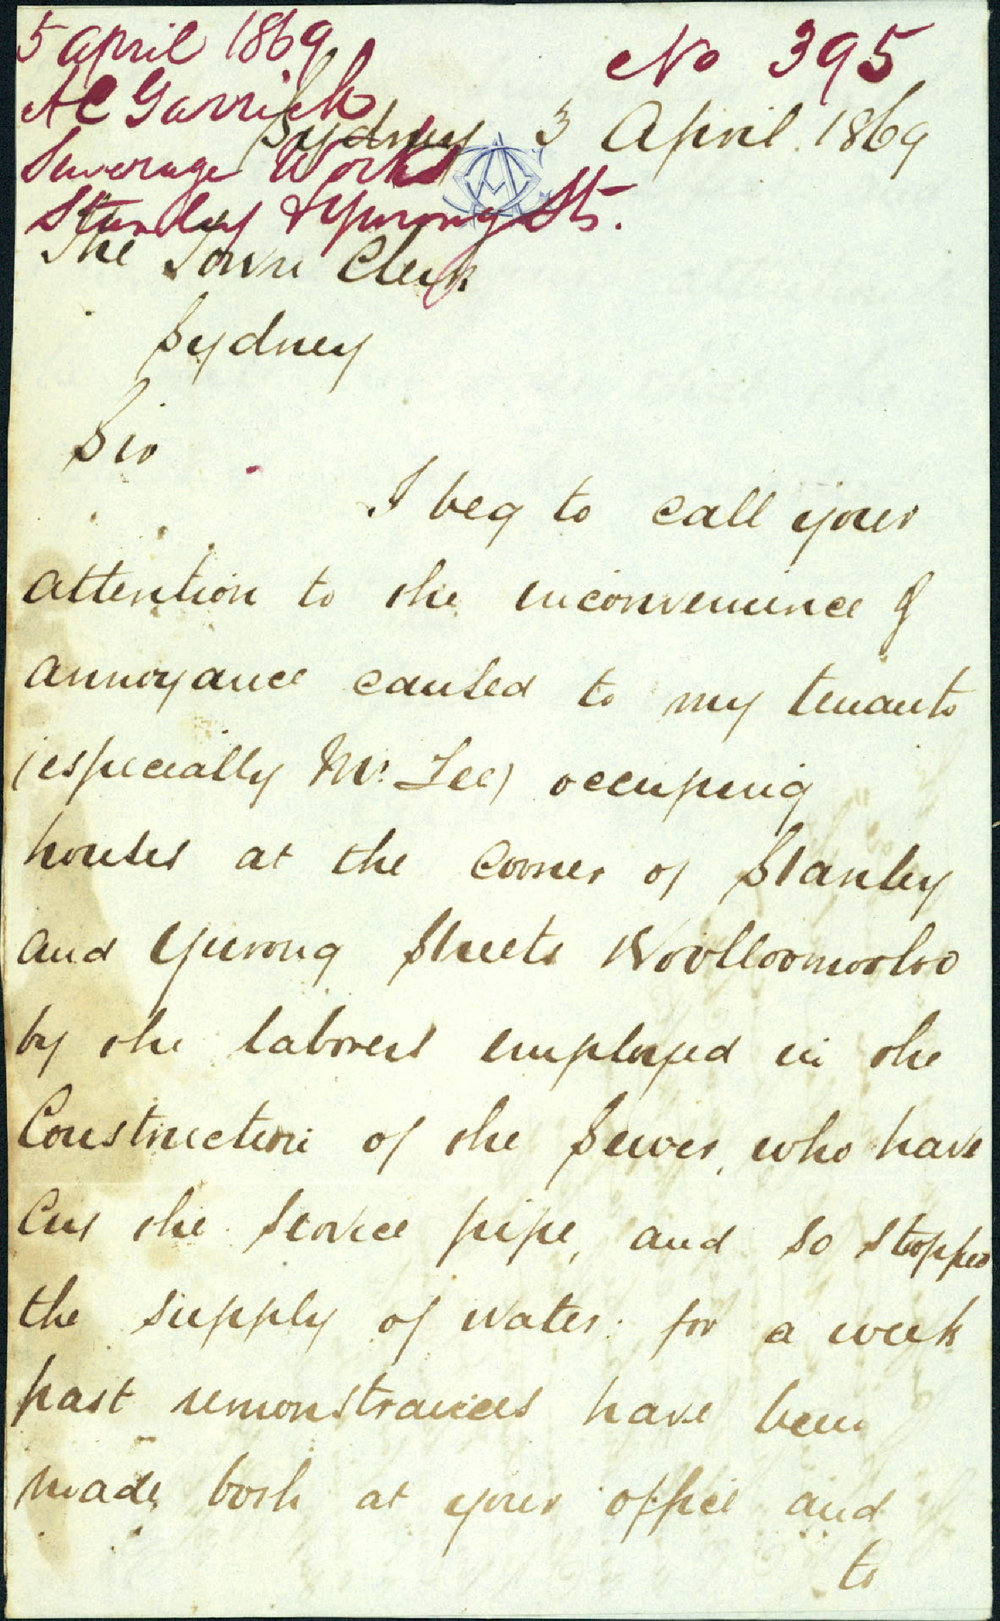 5 April 1869
No 395
A C Garrick
Sydney 3 April 1869
Sewerage Works
Stanley & Yurong Sts.
The Town Clerk
Sydney
Sir
I beg to call your
attention to the inconvenience &
annoyance caused to my tenants
(especially Mr. Lee) occupying
houses at the corner of Stanley
and Yurong Streets Woolloomooloo
by the laborers employed in the
Construction of the Sewer, who have
Cut the Service pipe, and so stopped
the supply of water. for a week
past remonstrances have been
made both at your office and
to